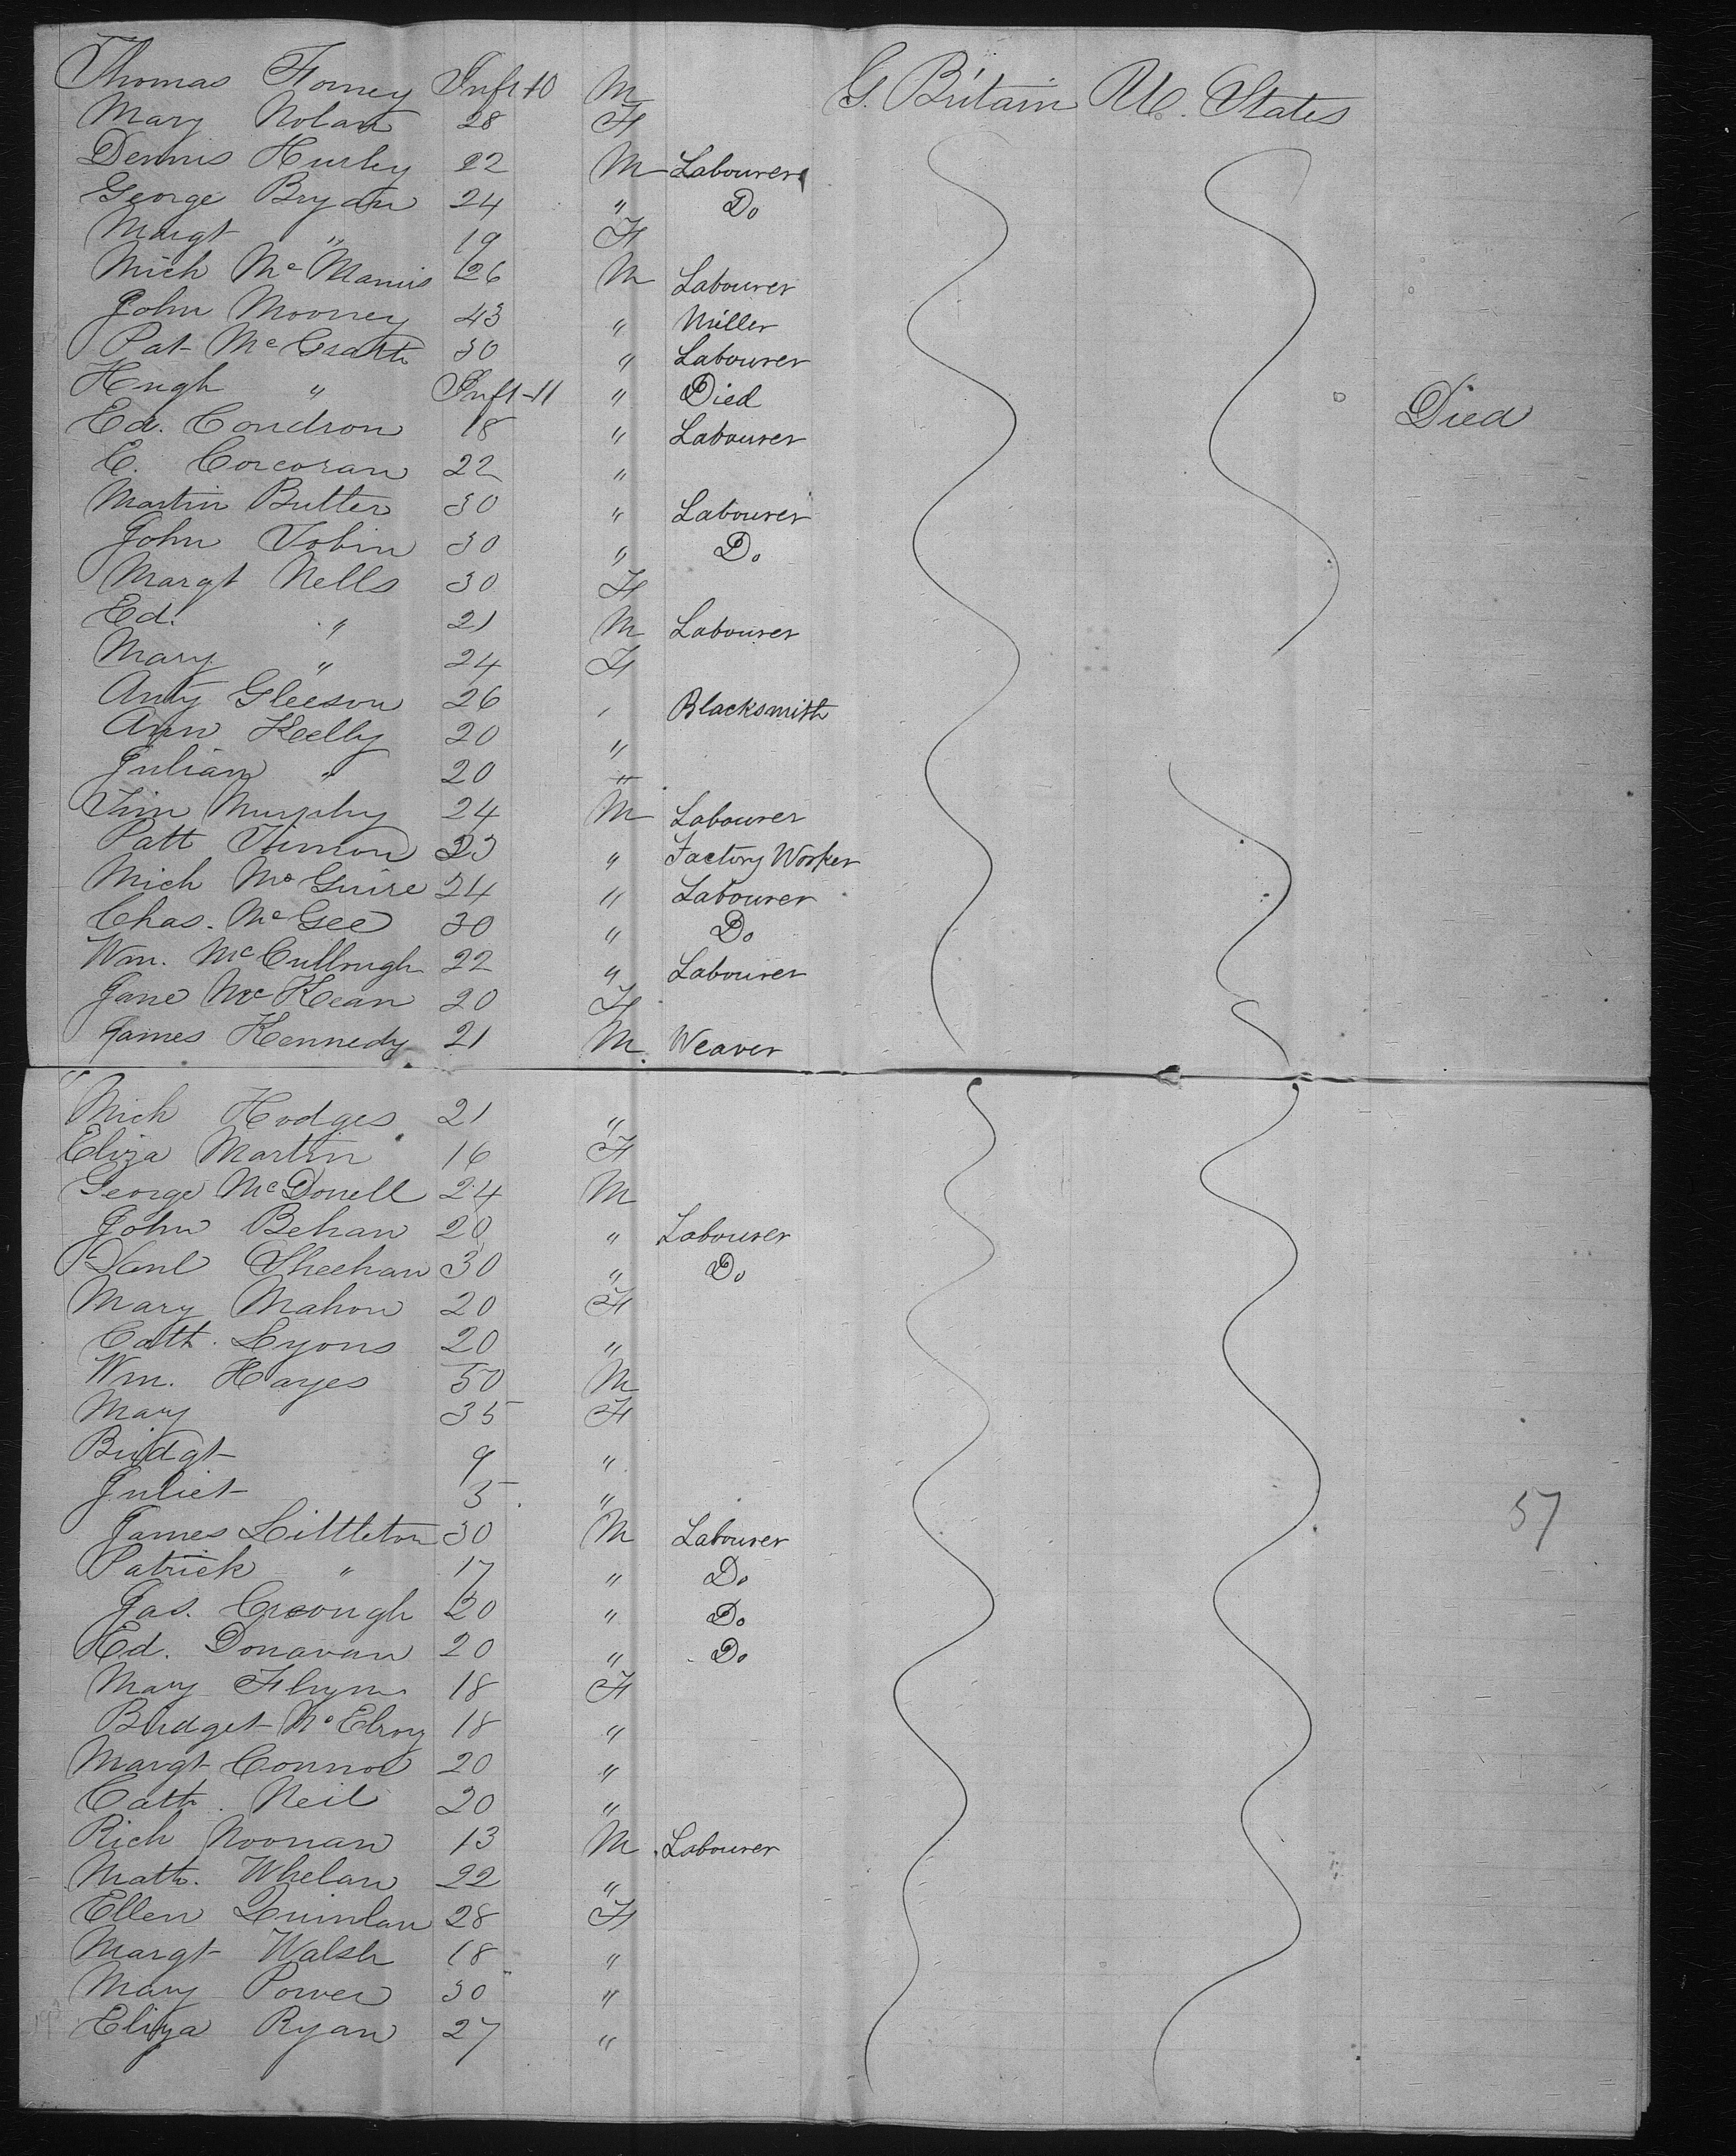 Thomas Forney Inft 10 M G. Britain U. States
Mary Nolan 28 F
Dennis Hurley 22 M Labourer
George Bryan 24 " Do
Margt " 19 F
Mich McManus 26 M Labourer
John Mooney 43 " Miller
Pat McGrath 30 " Labourer
Hugh " Inft 11 " Died Died
Ed. Condron 18 " Labourer
C. Corcoran 22 "
Martin Butler 30 " Labourer
John Tobin 30 " Do
Margt Nells 30 F
Ed. " 21 M Labourer
Mary " 24 F
Anty Gleeson 26 " Blacksmith
Ann Kelly 20 "
Julian " 20 "
Tim Murphy 24 M Labourer
Patt 23 " Factory Worker
Mich McGuire 24 " Labourer
Chas. McGee 30 " Do
Wm. McCullough 22 " Labourer
Jane McKean 20 F
James Kennedy 21 M. Weaver
Mich Hodges 21 "
Eliza Martin 16 F
George McDonell 24 M
John Behan 20 " Labourer
Danl Sheehan 30 " Do
Mary Mahon 20 F
Cath. Lyons 20 "
Wm. Hayes 50 M
Mary 35 F
Bridgt 9 "
Juliet 5 "
James Littleton 30 M Labourer
Patrick " 17 " Do
Jas. Creough 20 " Do
Ed. Donavan 20 " Do
Mary Flynn 18 F
Bridget McElroy 18 "
Margt Connor 20 "
Cath. Neil 20 "
Rich Noonan 13 M Labourer
Math. Whelan 22 "
Ellen Quinlan 28 F
Margt Walsh 18 "
Mary Power 30 "
Eliza Ryan 27 "
57